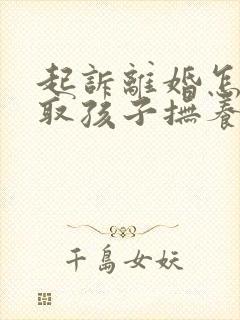 起訴離婚怎
取孩子撫養
千島女妖